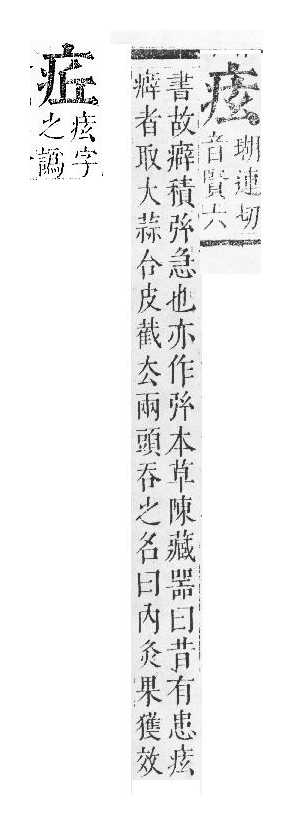 痃
連切
音賢六
書故癖積弦急也亦作弦本草陳藏器曰昔有患痃
癖者取大蒜合皮截厺兩頭吞之名曰內灸果獲效
痃字
之譌